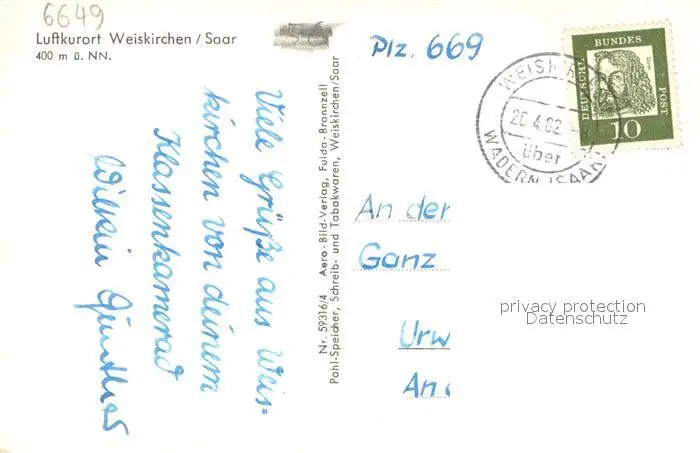 6649
Luftkurort Weiskirchen / Saar
400 m ü. NN.
Viele Grüße aus Weis-
kirchen von deinem
Klassenkamerad
Günther
Nr. 59316/4 Aero-Bild-Verlag, Fulda-Bronnzell
Pohl-Speicher, Schreib- und Tabakwaren, Weiskirchen/Saar
Plz. 669
DEUTSCHE BUNDES POST
Dürer
10
20.4.62
über
WADERN (SAAR)
An der
Ganz
Urw
An
privacy protection
Datenschutz